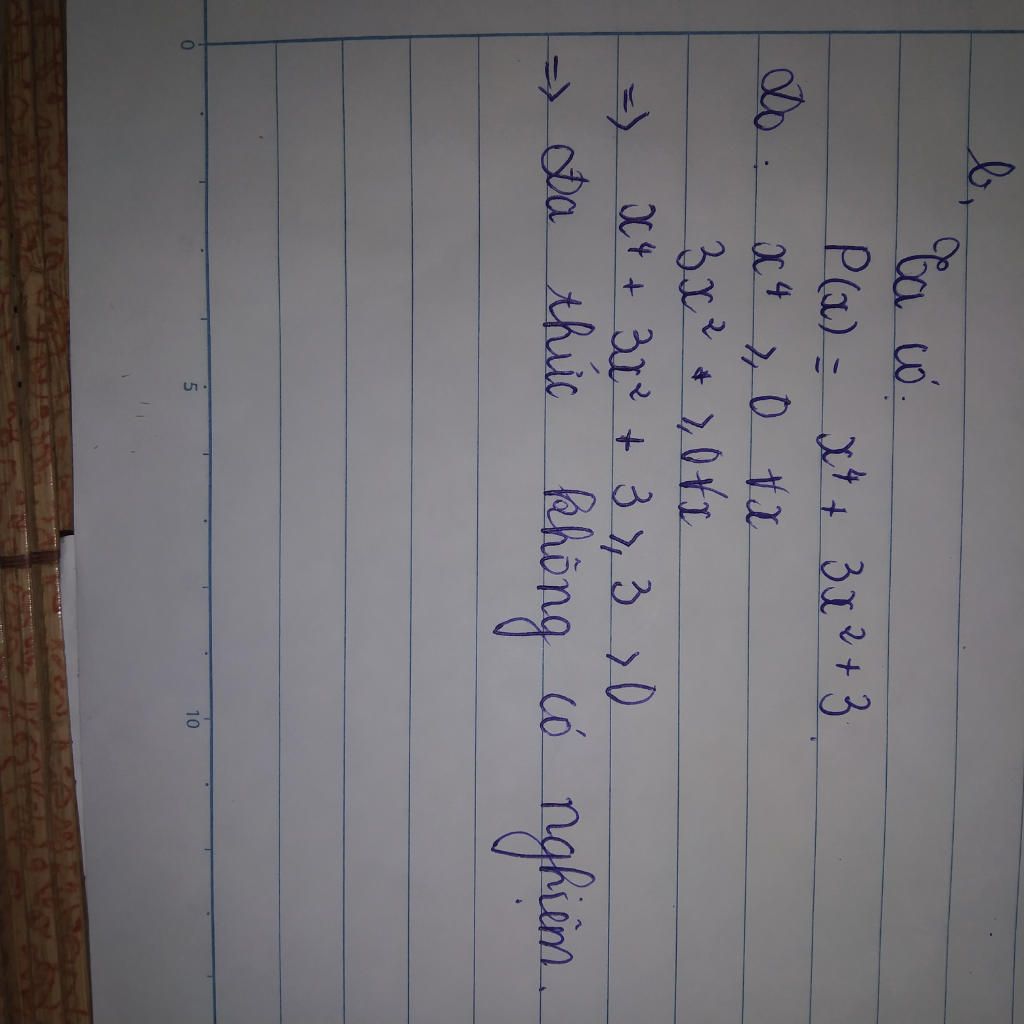 b,
Ta có:
P(x) = x⁴ + 3x² + 3
Do : x⁴ ≥ 0 ∀x
3x² + ≥ 0 ∀x
=> x⁴ + 3x² + 3 ≥ 3 > 0
=> Đa thức không có nghiệm.
0 5 10